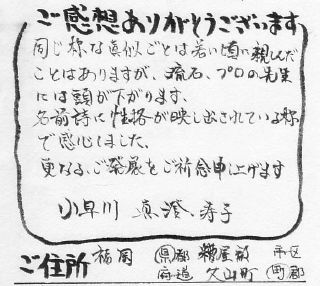 ご感想ありがとうございます
同じ様な真似ごとは若い頃に親しんだ
ことはありますが、流石、プロの先生
には頭が下がります。
名前詩に性格が映し出されている様
で感心しました。
更なる、ご発展をご祈念申し上げます
小早川 真澄、寿子
ご住所 福岡 県都府道 糟屋郡久山町 市区町郡